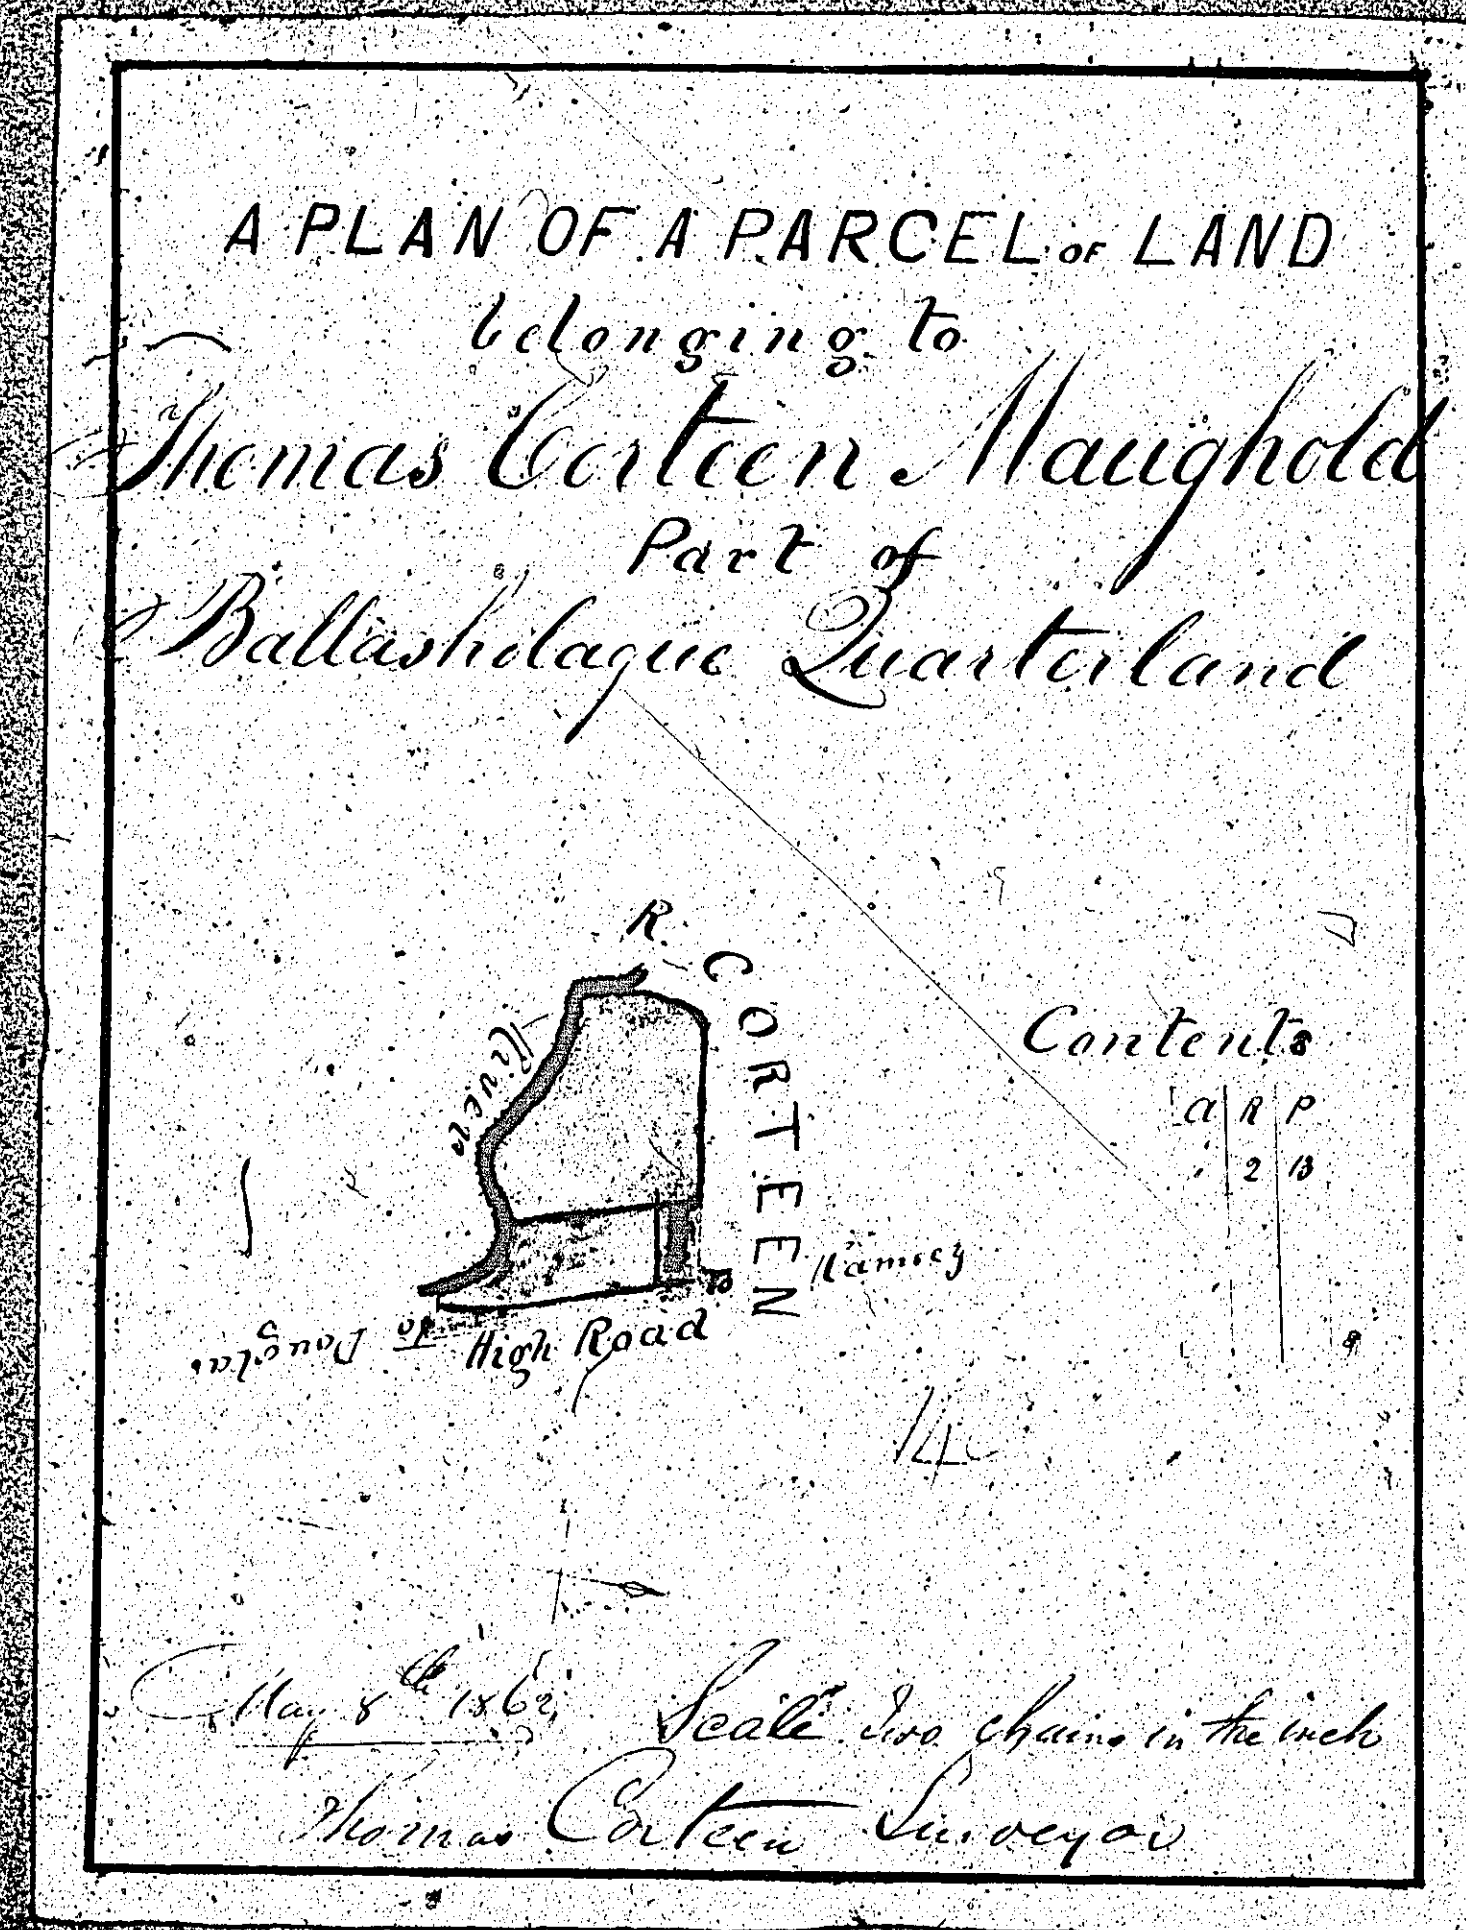 A PLAN OF A PARCEL OF LAND
belonging to
Thomas Corteen Maughold
Part of
Ballasholague Quarterland
R. CORTEEN
River
Contents
A R P
2 13
to Ramsey
to Douglas
High Road
14
May 8th 1862
Scale Two Chains in the inch
Thomas Corteen Surveyor